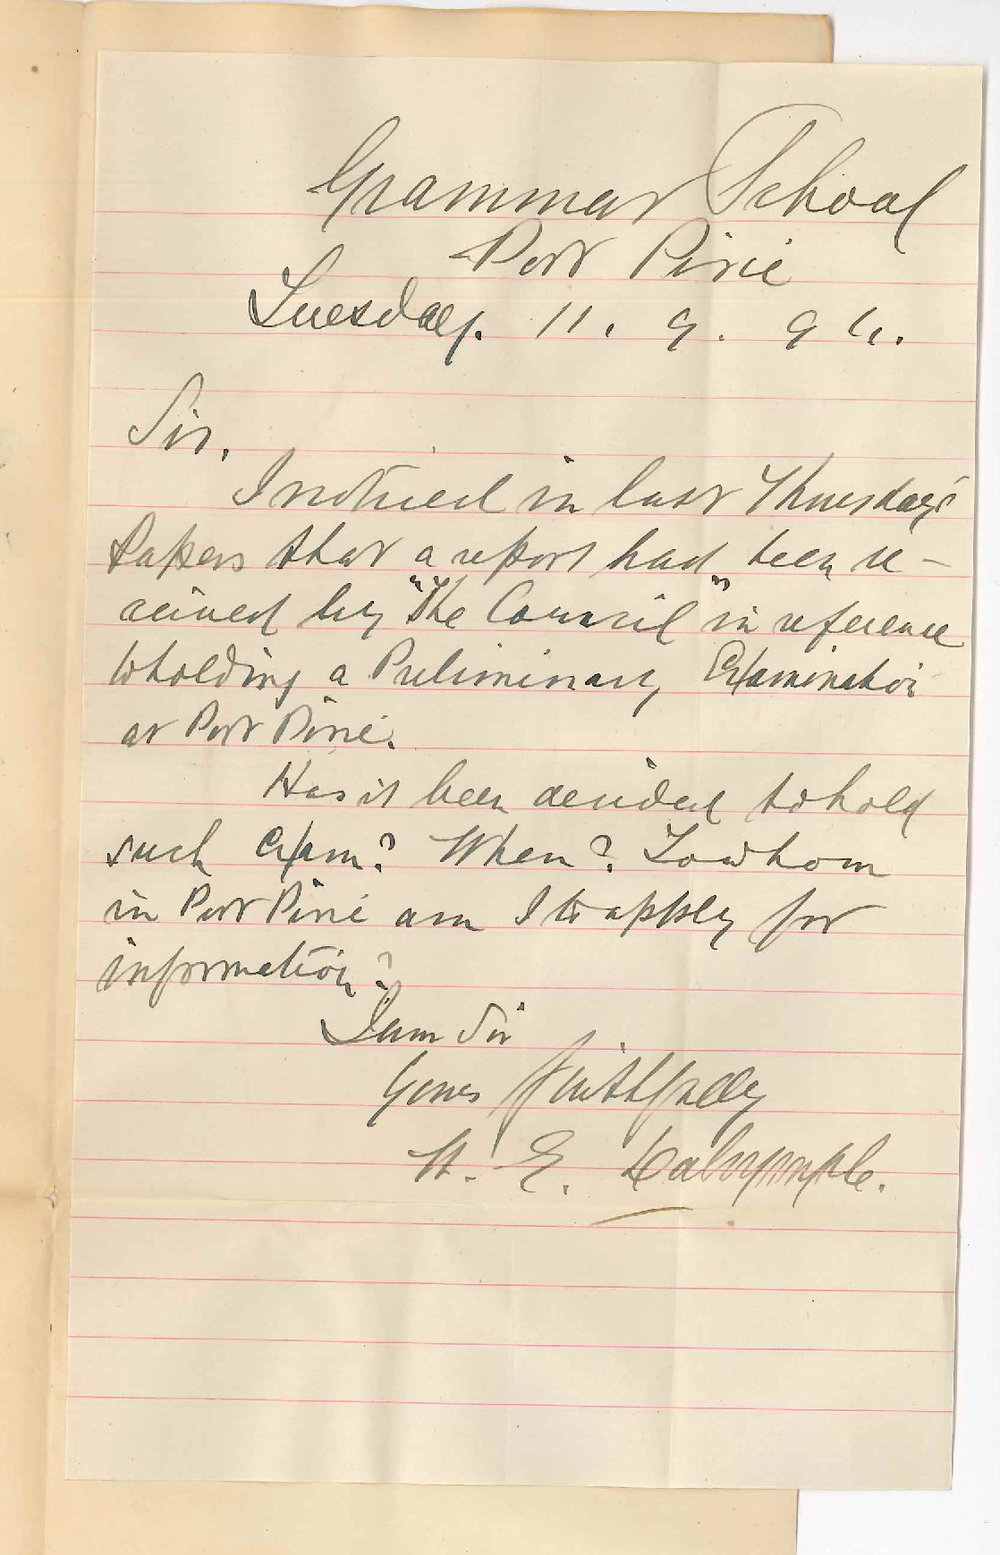 Grammar School
Port Pirie
Tuesday. 11. 9. 94.
Sir,
I noticed in last Thursday's
Papers that a report had been re-
ceived by "The Council" in reference
to holding a Preliminary Examination
at Port Pirie.
Has it been decided to hold
such Exam? When? To whom
in Port Pirie am I to apply for
information?
I am Sir
Yours faithfully
W. E. Dalrymple.